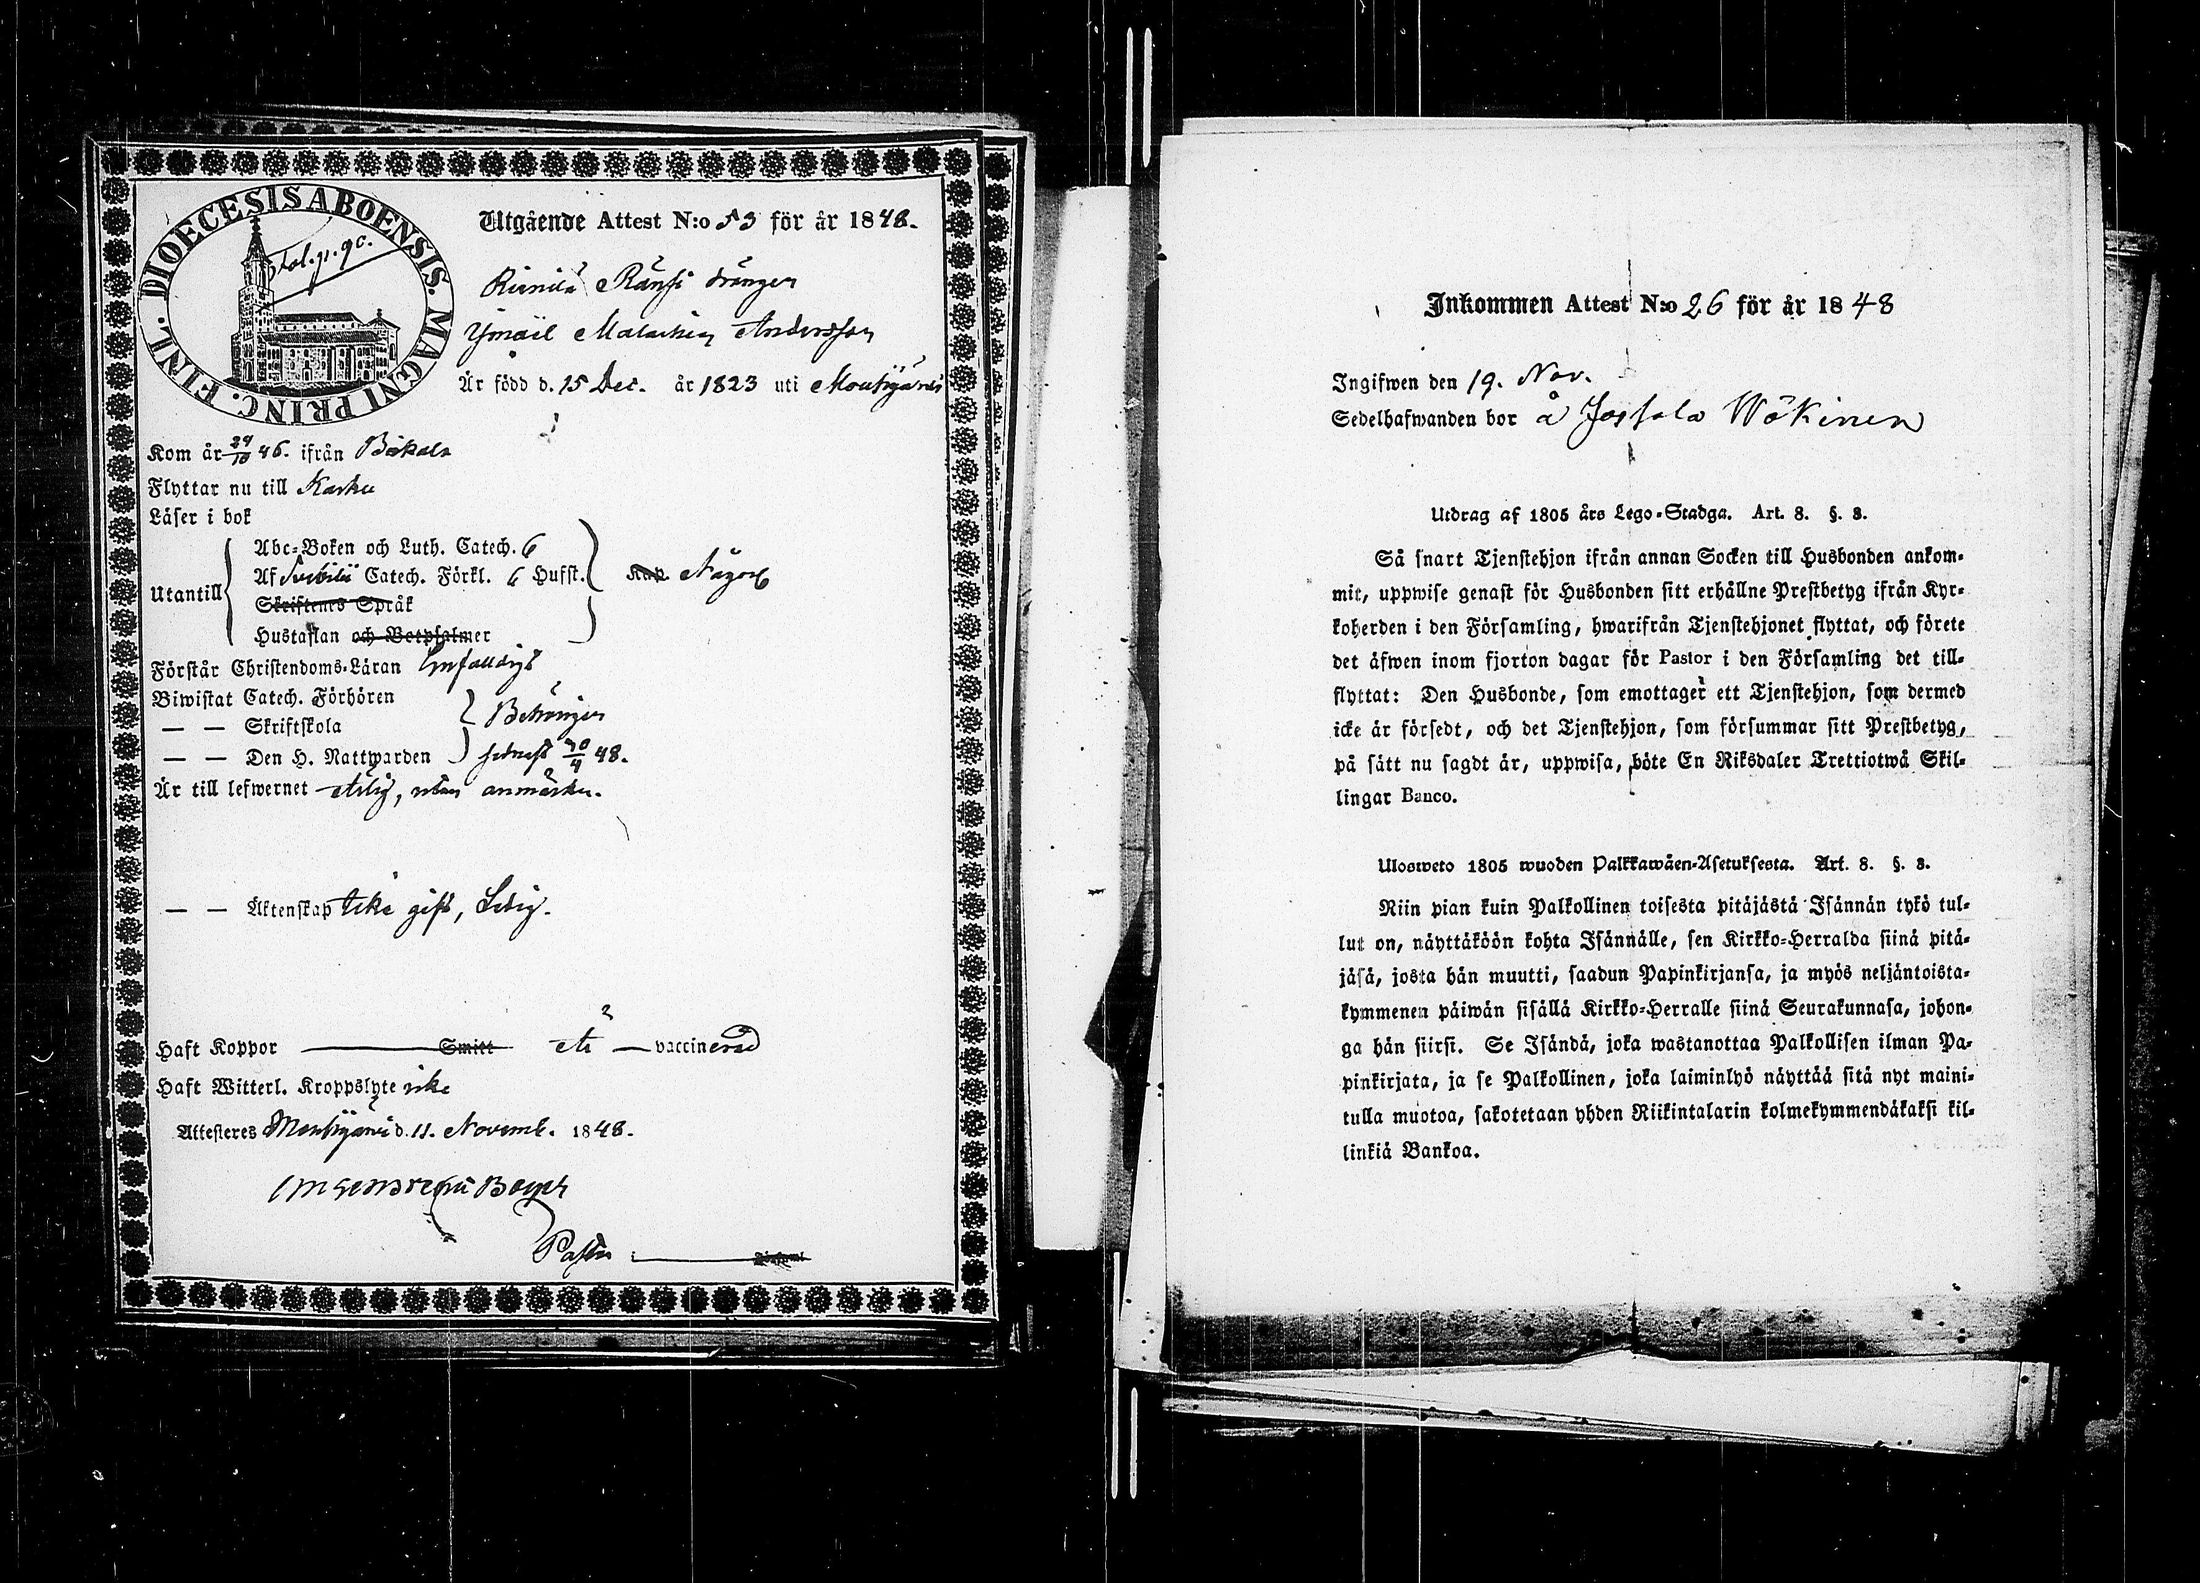 DIOECESIS ABOENSIS. MAGNI PRINC. FINL.
Fol. p. 90.
Utgående Attest N:o 53 för år 1848.
Ränsi drängen
Ismaël Malachias Andersson
Är född d. 15 Dec. år 1823 uti Mouhijärvi
Kom år 24/10 46. ifrån
Flyttar nu till Karku
Läser i bok
Utantill
Abc-Boken och Luth. Catech. 6
Af Svebilii Catech. Förkl. 6 Hufst.
Skriftenes Språk
Hustaflan och Botpsalmer
Någorl
Förstår Christendoms-Läran Enfaldigt
Biwistat Catech. Förhören
— — Skriftskola
— — Den H. Nattwarden
Behörigen
senast 30/4 48.
Är till lefwernet ärlig, utan anmärkn.
— — Äktenskap Icke gift, Ledig.
Haft Koppor — Smitt — vaccinerad
Haft Witterl. Kroppslyte icke
Attesteres Mouhijärvi d. 11. Novemb. 1848.
Pastor
Inkommen Attest N:o 26 för år 1848
Ingifwen den 19. Nov.
Sedelhafwanden bor å Jossala Wäkinen
Utdrag af 1805 års Lego-Stadga. Art. 8. §. 8.
Så snart Tjenstehjon ifrån annan Socken till Husbonden ankom-
mit, uppwise genast för Husbonden sitt erhållne Prestbetyg ifrån Kyr-
koherden i den Församling, hwarifrån Tjenstehjonet flyttat, och förete
det äfwen inom fjorton dagar för Pastor i den Församling det till-
flyttat: Den Husbonde, som emottager ett Tjenstehjon, som dermed
icke är försedt, och det Tjenstehjon, som försummar sitt Prestbetyg,
på sätt nu sagdt är, uppwisa, böte En Riksdaler Trettiotwå Skil-
lingar Banco.
Ulosweto 1805 wuoden Palkkawäen-Asetuksesta. Art. 8. §. 8.
Niin pian kuin Palkollinen toisesta pitäjästä Isännän tykö tul-
lut on, näyttäköön kohta Isännälle, sen Kirkko-Herralda siinä pitä-
jäsä, josta hän muutti, saadun Papinkirjansa, ja myös neljäntoista-
kymmenen päiwän sisällä Kirkko-Herralle siinä Seurakunnasa, johon-
ga hän siirsi. Se Isändä, joka wastanottaa Palkollisen ilman Pa-
pinkirjata, ja se Palkollinen, joka laiminlyö näyttää sitä nyt maini-
tulla muotoa, sakotetaan yhden Riikintalarin kolmekymmendäkaksi kil-
linkiä Bankoa.